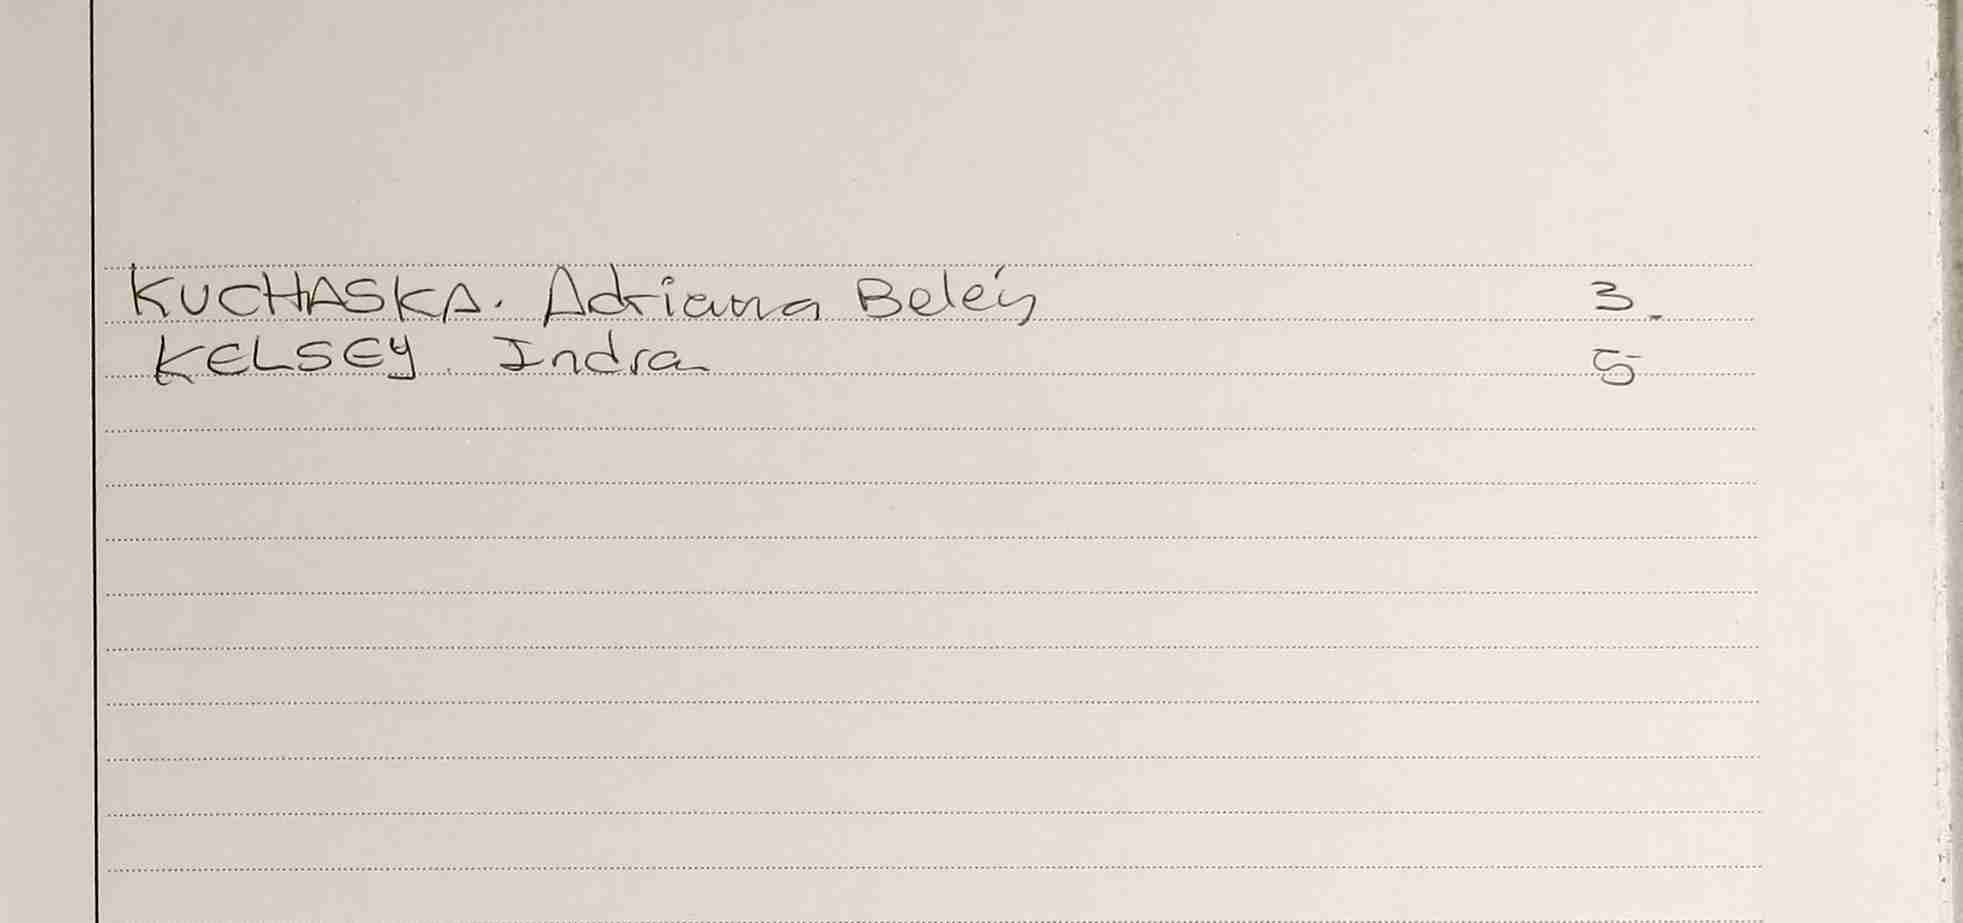 KUCHASKA. Adriana Belén 3.
KELSEY. Indra 5